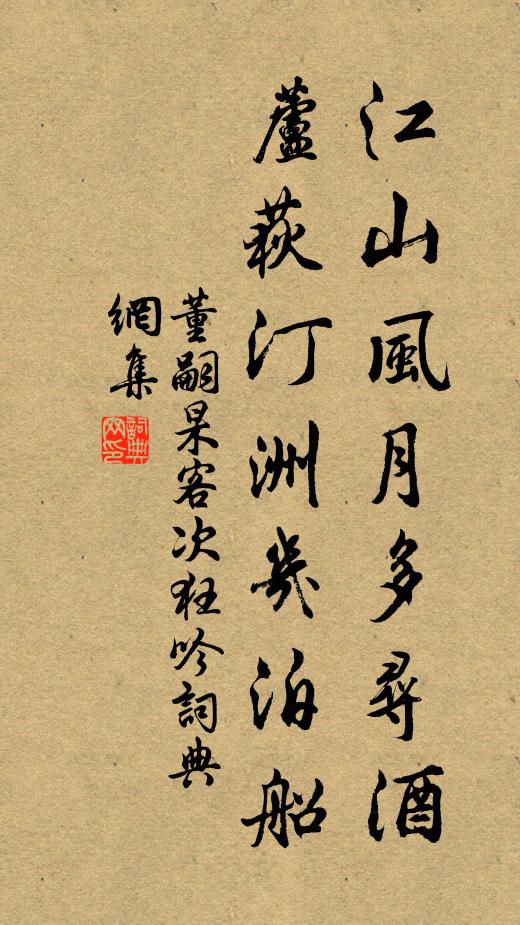 江山風月多尋酒
蘆荻汀洲幾泊船
董嗣杲客次狂吟詞典
網集
詞典
网印